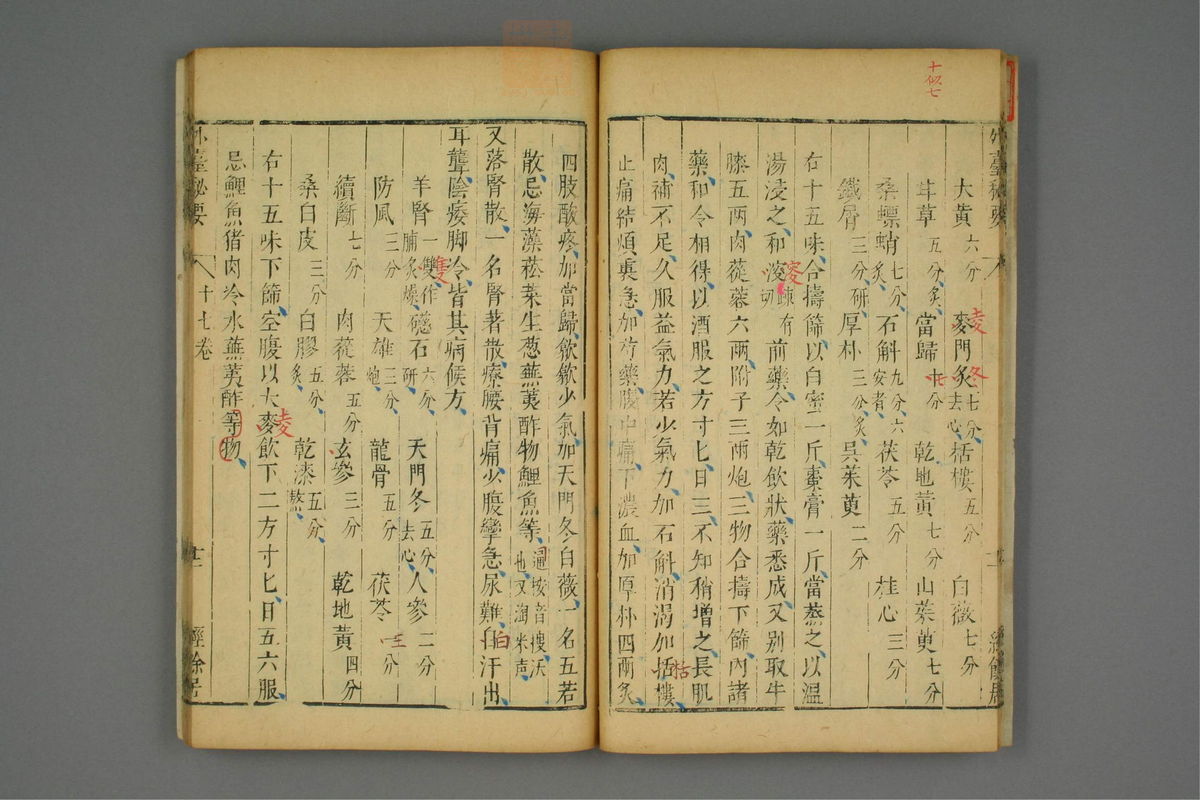 十似七
大黄六分 麥門冬七分炙去心 栝樓五分 白薇七分
甘草五分炙 當歸十分 乾地黄七分 山茱萸七分
桑螵蛸七分炙 石斛九分六安者 茯苓五分 桂心三分
鐵屑三分研 厚朴三分炙 呉茱萸二分
右十五味合擣篩以白蜜一斤棗膏一斤當蒸之以温
湯浸之和 有前藥令如乾飲狀藥悉成又别取牛
膝五两肉蓯蓉六兩附子三兩炮三物合擣下篩内諸
藥和令相得以酒服之方寸匕日三不知稍增之長肌
肉補不足久服益氣力若少氣力加石斛消渴加栝樓
止痛結煩裏急加芍藥腹中痛下濃血加厚朴四兩炙
四肢酸疼加當歸歙歙少氣加天門冬白薇一名五若
散忌海藻菘菜生葱蕪荑酢物鯉魚等
又落腎散一名腎著散療腰背痛少腹攣急尿難自汗出
耳聾陰痿脚冷皆其病候方
羊腎一雙作脯炙燥 礠石六分研 天門冬五分去心 人參二分
防風三分 天雄三分炮 龍骨五分 茯苓一分
續斷七分 肉蓯蓉五分 玄參三分 乾地黄四分
桑白皮三分 白膠五分炙 乾漆五分熬
右十五味下篩空腹以大麥飲下二方寸匕日五六服
忌鯉魚猪肉冷水蕪荑酢等物
外臺秘要 十七卷 十二 經餘居